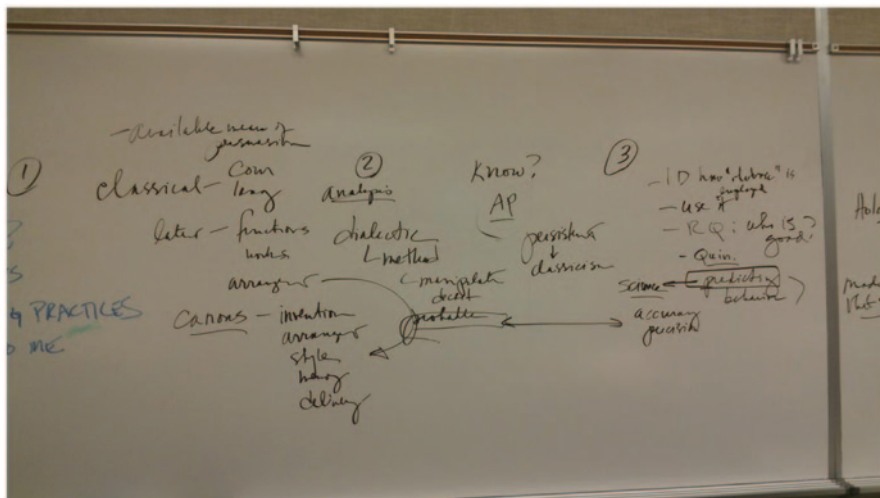 1
PRACTICES
ME
- available means of
persuasion
classical - Com
lang
later - functions
modes
arrangem
canons - invention
arrangem
style
memory
delivery
2
analysis
dialectic
method
manipulate
probable
Know?
AP
persistence
classicism
3
- ID how "rhetoric" is
employed
- use it
- RQ: who is
good?
- Quin.
science
prediction
behavior
accuracy
precision